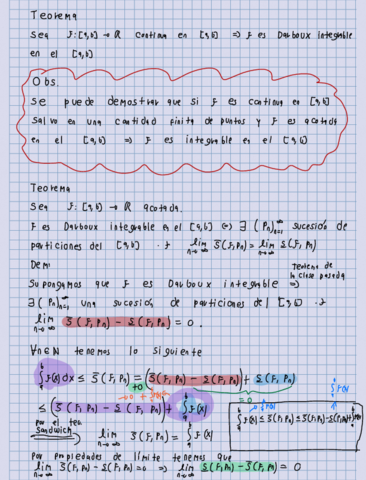 Teorema
Sea F: [a,b] → R continua en [a,b] ⇒ F es Darboux integrable
en el [a,b]
Obs.
Se puede demostrar que si F es continua en [a,b]
salvo en una cantidad finita de puntos y F es acotada
en el [a,b] ⇒ F es integrable en el [a,b]
Teorema
Sea F: [a,b] → R acotada.
F es Darboux integrable en el [a,b] ⇔ ∃ (Pn)_{n=1}^∞ sucesión de
particiones del [a,b] · t lim_{n→∞} S̄(F,Pn) = lim_{n→∞} S̲(F,Pn)
Dem:
Teorema de
la clase pasada
Supongamos que F es Darboux integrable ⇒
∃ (Pn)_{n=1}^∞ una sucesión de particiones del [a,b] · t
lim_{n→∞} S̄(F,Pn) - S̲(F,Pn) = 0.
∀n∈N tenemos lo siguiente
∫_a^b F(x) dx ≤ S̄(F,Pn) = (S̄(F,Pn) - S̲(F,Pn)) + S̲(F,Pn)
≤ (S̄(F,Pn) - S̲(F,Pn)) + ∫_a^b F(x)
∫F(x) ≤ S̄(F,Pn) ≤ S̄(F,Pn) - S̲(F,Pn) +
por el teo
sandwich, lim_{n→∞} S̄(F,Pn) = ∫_a^b F(x)
por propiedades de límite tenemos que
lim_{n→∞} S̄(F,Pn) - S̲(F,Pn) = 0 ⇒ lim_{n→∞} S̲(F,Pn) - S̄(F,Pn) = 0